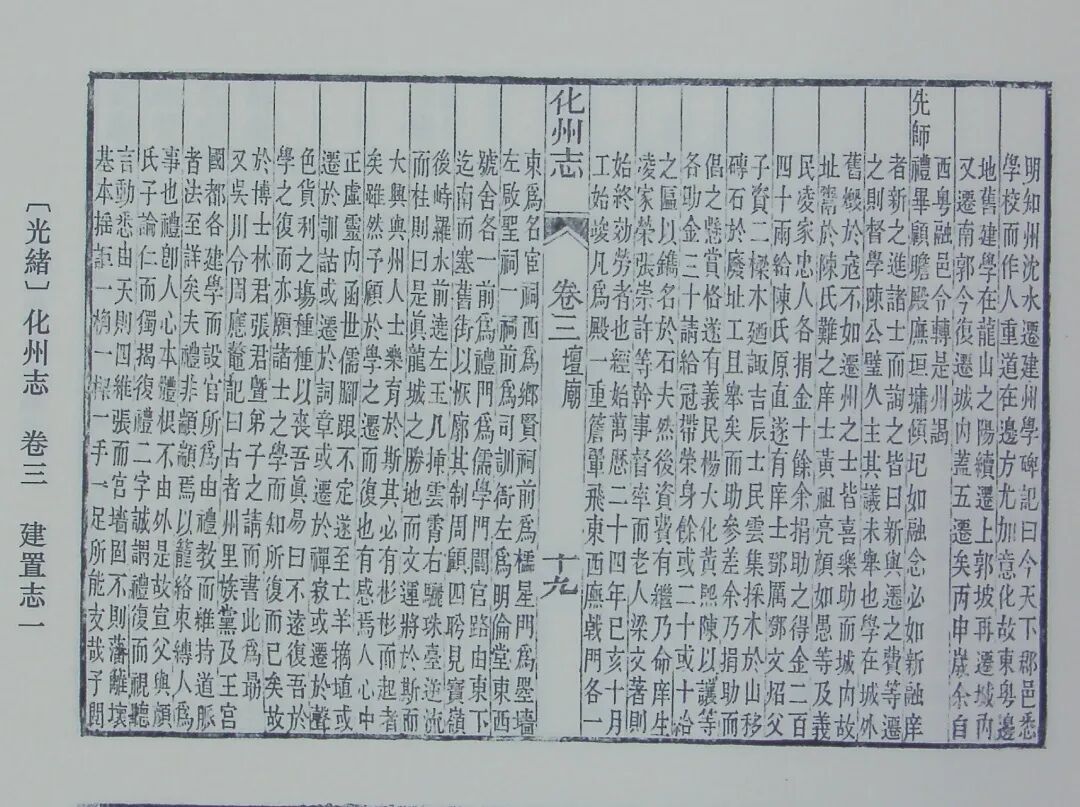 明知州沈水遷建州學碑記曰今天下郡邑悉
學校而作人重道在邊方尤加意化故東粵邊
地舊建學在龍山之陽續遷上郭坡再遷城內
又遷南郭今復遷城內蓋五遷矣丙申歲余自
西粵融邑令轉是州謁
先師禮畢顧瞻殿廡垣墉傾圮如融念必如新融庠
者新之進諸士而詢之皆曰新與遷之費等遷
之則督學陳公璧久主其議未舉也學在城外
舊燬於寇不如遷州之士皆喜樂助而城内故
址鬻於陳氏難之庠士黃祖亮顏如愚等及義
民凌家忠人各捐金十餘余捐助之得金二百
四十兩給陳氏原直遂有庠士鄧厲鄧文炤父
子資二樑木廼諏吉辰士民雲集採木於山移
磚石於廢址工且舉矣而助參差余乃捐助而
倡之懸賞格遂有義民楊大化黃熙陳以讓等
各助金三十請給冠帶榮身餘或二十或十洽
之區以鐫名於石夫然後資費有繼乃命庠生
凌家榮張崇許等幹事督率而老人梁文著則
始終効勞者也經始萬曆二十四年已亥十月
工始竣凡爲殿一重簷翬飛東西廡戟門各一
化州志 卷三 壇廟 十九
東爲名宦祠西爲鄉賢祠前爲櫺星門爲墨墻
左啟聖祠一祠前爲司訓衙左爲明倫堂東西
號舍各一前爲禮門爲儒學門闢官路由東下
迄南而塞舊街以恢廓其制周顧四聆見寶嶺
後峙羅水前遶左玉几揷雲霄右驪珠臺逆流
而柱則曰是真龍城之勝地而文運將於斯而
大興與州人士樂育於斯其必有彬彬而起者
矣雖然予願於學之遷而復也有感焉人心中
正虛靈内函世儒腳跟不定遂至亡羊摘埴或
遷於訓詁或遷於詞章或遷於禪寂或遷於聲
色貨利之塲種種以喪吾真易曰不遠復吾於
學之復而亦願諸士之學而知所復而已矣故
於博士林君張君暨弟子之請而書此爲勗
又吳川令周應鼇記曰古者州里族黨及王宮
國都各建學而設官所爲由禮教而維持道脈
者法至詳矣夫禮非顓顓焉以籠絡束縛人爲
事也禮卽人心本體根不由外是故宣父與顏
氏子論仁而獨揭復禮二字誠謂禮復而視聽
言動悉由天則四維張而宮墻固不則藩離壞
基本揺詎一桷一楔一手一足所能支哉子閱
〔光緒〕化州志 卷三 建置志一